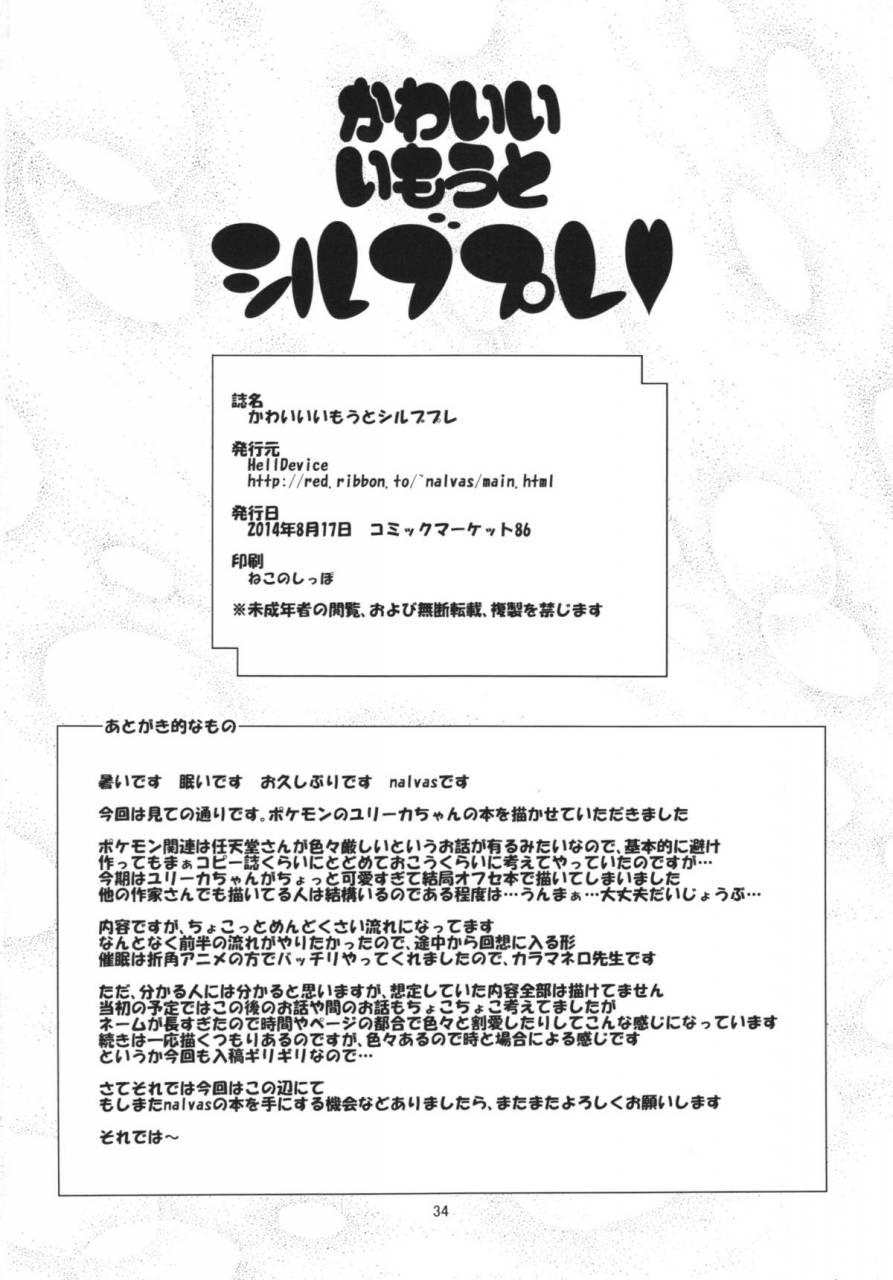 かわいい
いもうと
シルブプレ♥
誌名
かわいいいもうとシルブプレ
発行元
HellDevice
http://red.ribbon.to/`nalvas/main.html
発行日
2014年8月17日 コミックマーケット86
印刷
ねこのしっぽ
※未成年者の閲覧、および無断転載、複製を禁じます
あとがき的なもの
暑いです 眠いです お久しぶりです nalvasです
今回は見ての通りです。ポケモンのユリーカちゃんの本を描かせていただきました
ポケモン関連は任天堂さんが色々厳しいというお話が有るみたいなので、基本的に避け
作ってもまぁコピー誌くらいにとどめておこうくらいに考えてやっていたのですが…
今期はユリーカちゃんがちょっと可愛すぎて結局オフセ本で描いてしまいました
他の作家さんでも描いてる人は結構いるのである程度は…うんまぁ…大丈夫だいじょうぶ…
内容ですが、ちょこっとめんどくさい流れになってます
なんとなく前半の流れがやりたかったので、途中から回想に入る形
催眠は折角アニメの方でバッチリやってくれましたので、カラマネロ先生です
ただ、分かる人には分かると思いますが、想定していた内容全部は描けてません
当初の予定ではこの後のお話や間のお話もちょこちょこ考えてましたが
ネームが長すぎたので時間やページの都合で色々と割愛したりしてこんな感じになっています
続きは一応描くつもりあるのですが、色々あるので時と場合による感じです
というか今回も入稿ギリギリなので…
さてそれでは今回はこの辺にて
もしまたnalvasの本を手にする機会などありましたら、またまたよろしくお願いします
それでは～
34